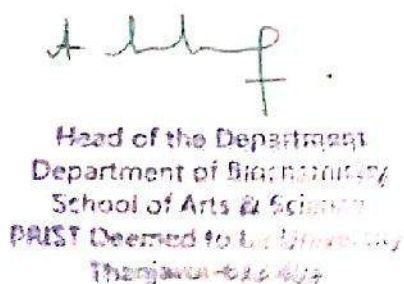 Head of the Department
Department of Biochemistry
School of Arts & Science
PRIST Deemed to be University
Thanjavur